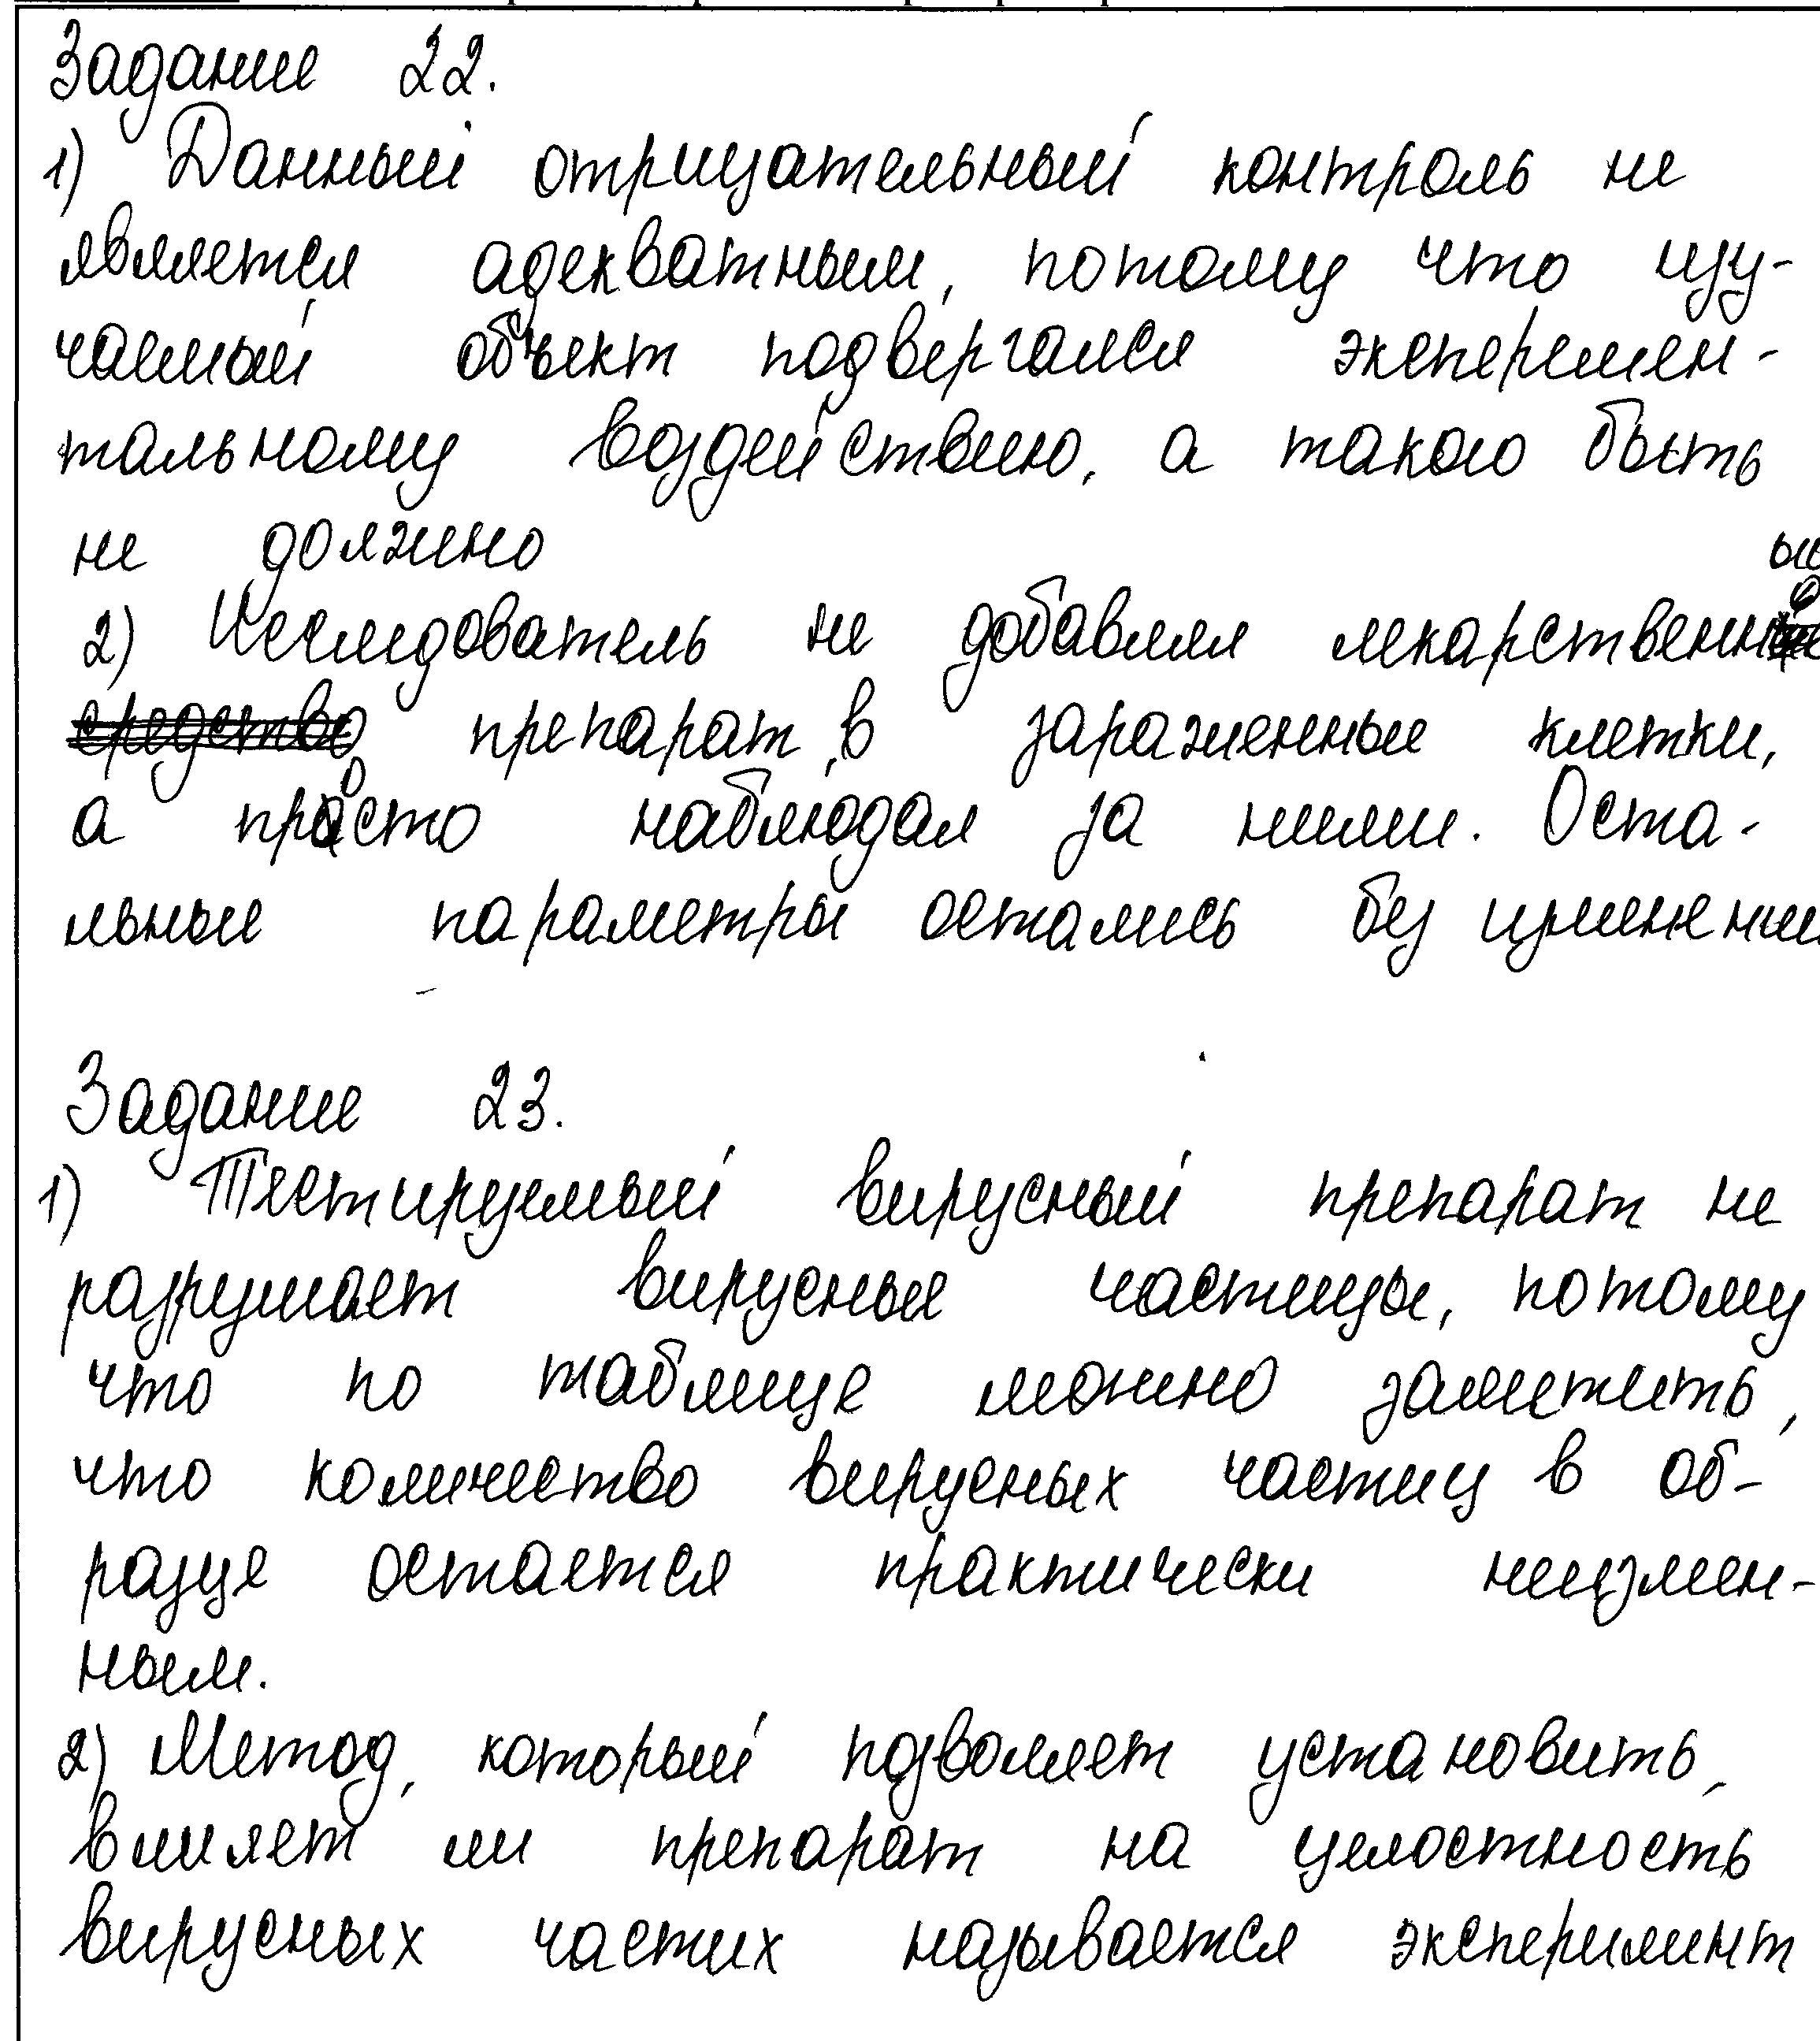 Задание 22.
1) Данный отрицательный контроль не
является адекватным, потому что изу-
чаемый объект подвергался эксперемен-
тальному воздействию, а такого быть
не должно
2) Исследователь не добавлял лекарственный
препарат в зараженные клетки,
а просто наблюдал за ними. Оста-
льные параметры остались без изменени
Задание 23.
1) Тестируемый вирусный препарат не
разрушает вирусные частицы, потому
что по таблице можно заметить,
что количество вирусных частиц в об-
разце остается практически неизмен-
ным.
2) Метод, который позволяет установить,
влияет ли препарат на целостность
вирусных частих называется эксперимент